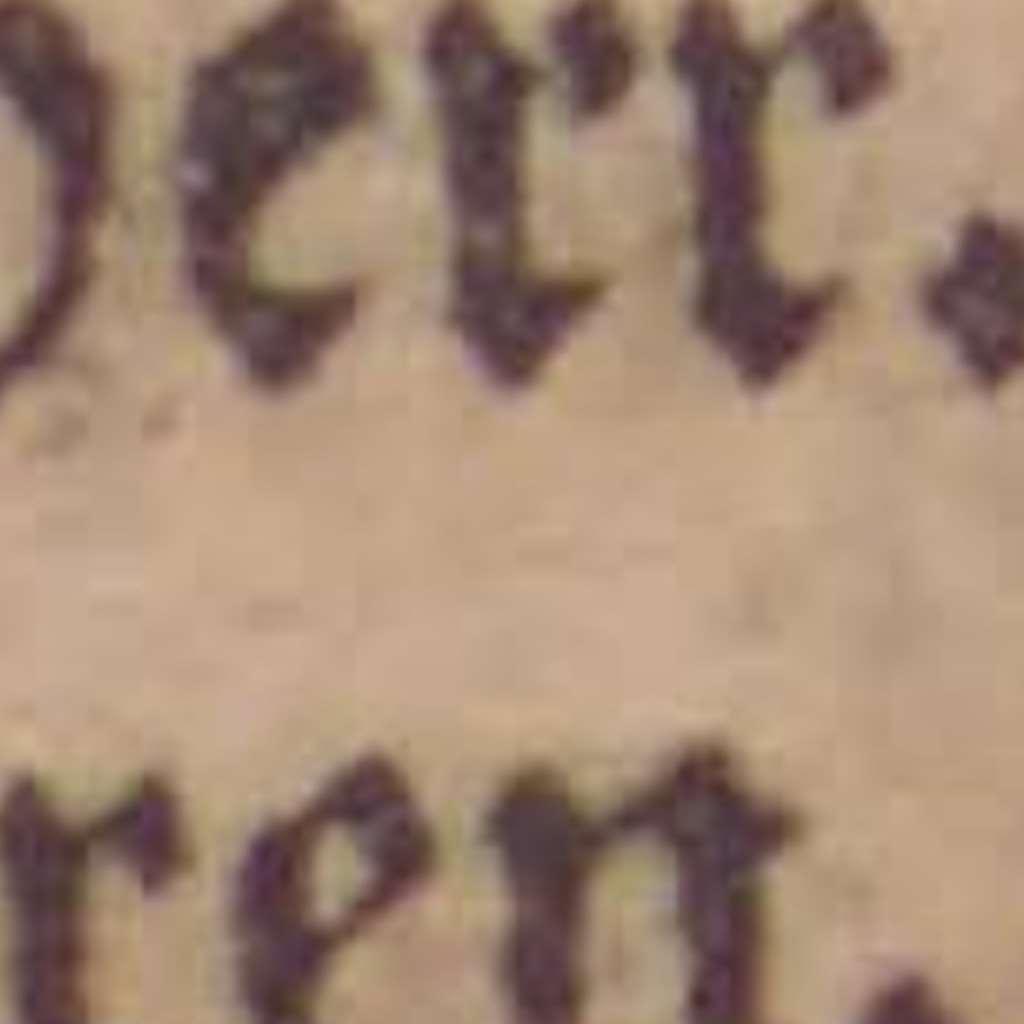 herr.
ren.